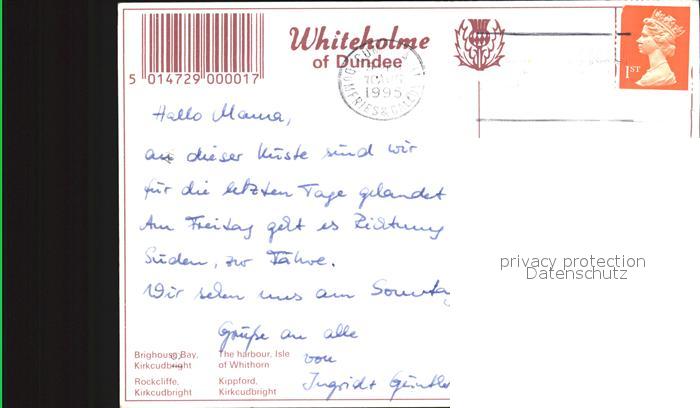 Whiteholme
of Dundee
5 014729 000017
1995
1ST
Hallo Mama,
an dieser Küste sind wir
für die letzten Tage gelandet
Am Freitag geht es Richtung
Süden, zur Fähre.
Wir sehen uns am Sonntag
Grüße an alle
von
Ingrid +
privacy protection
Datenschutz
Brighouse Bay, Kirkcudbright
The harbour, Isle of Whithorn
Rockcliffe, Kirkcudbright
Kippford, Kirkcudbright